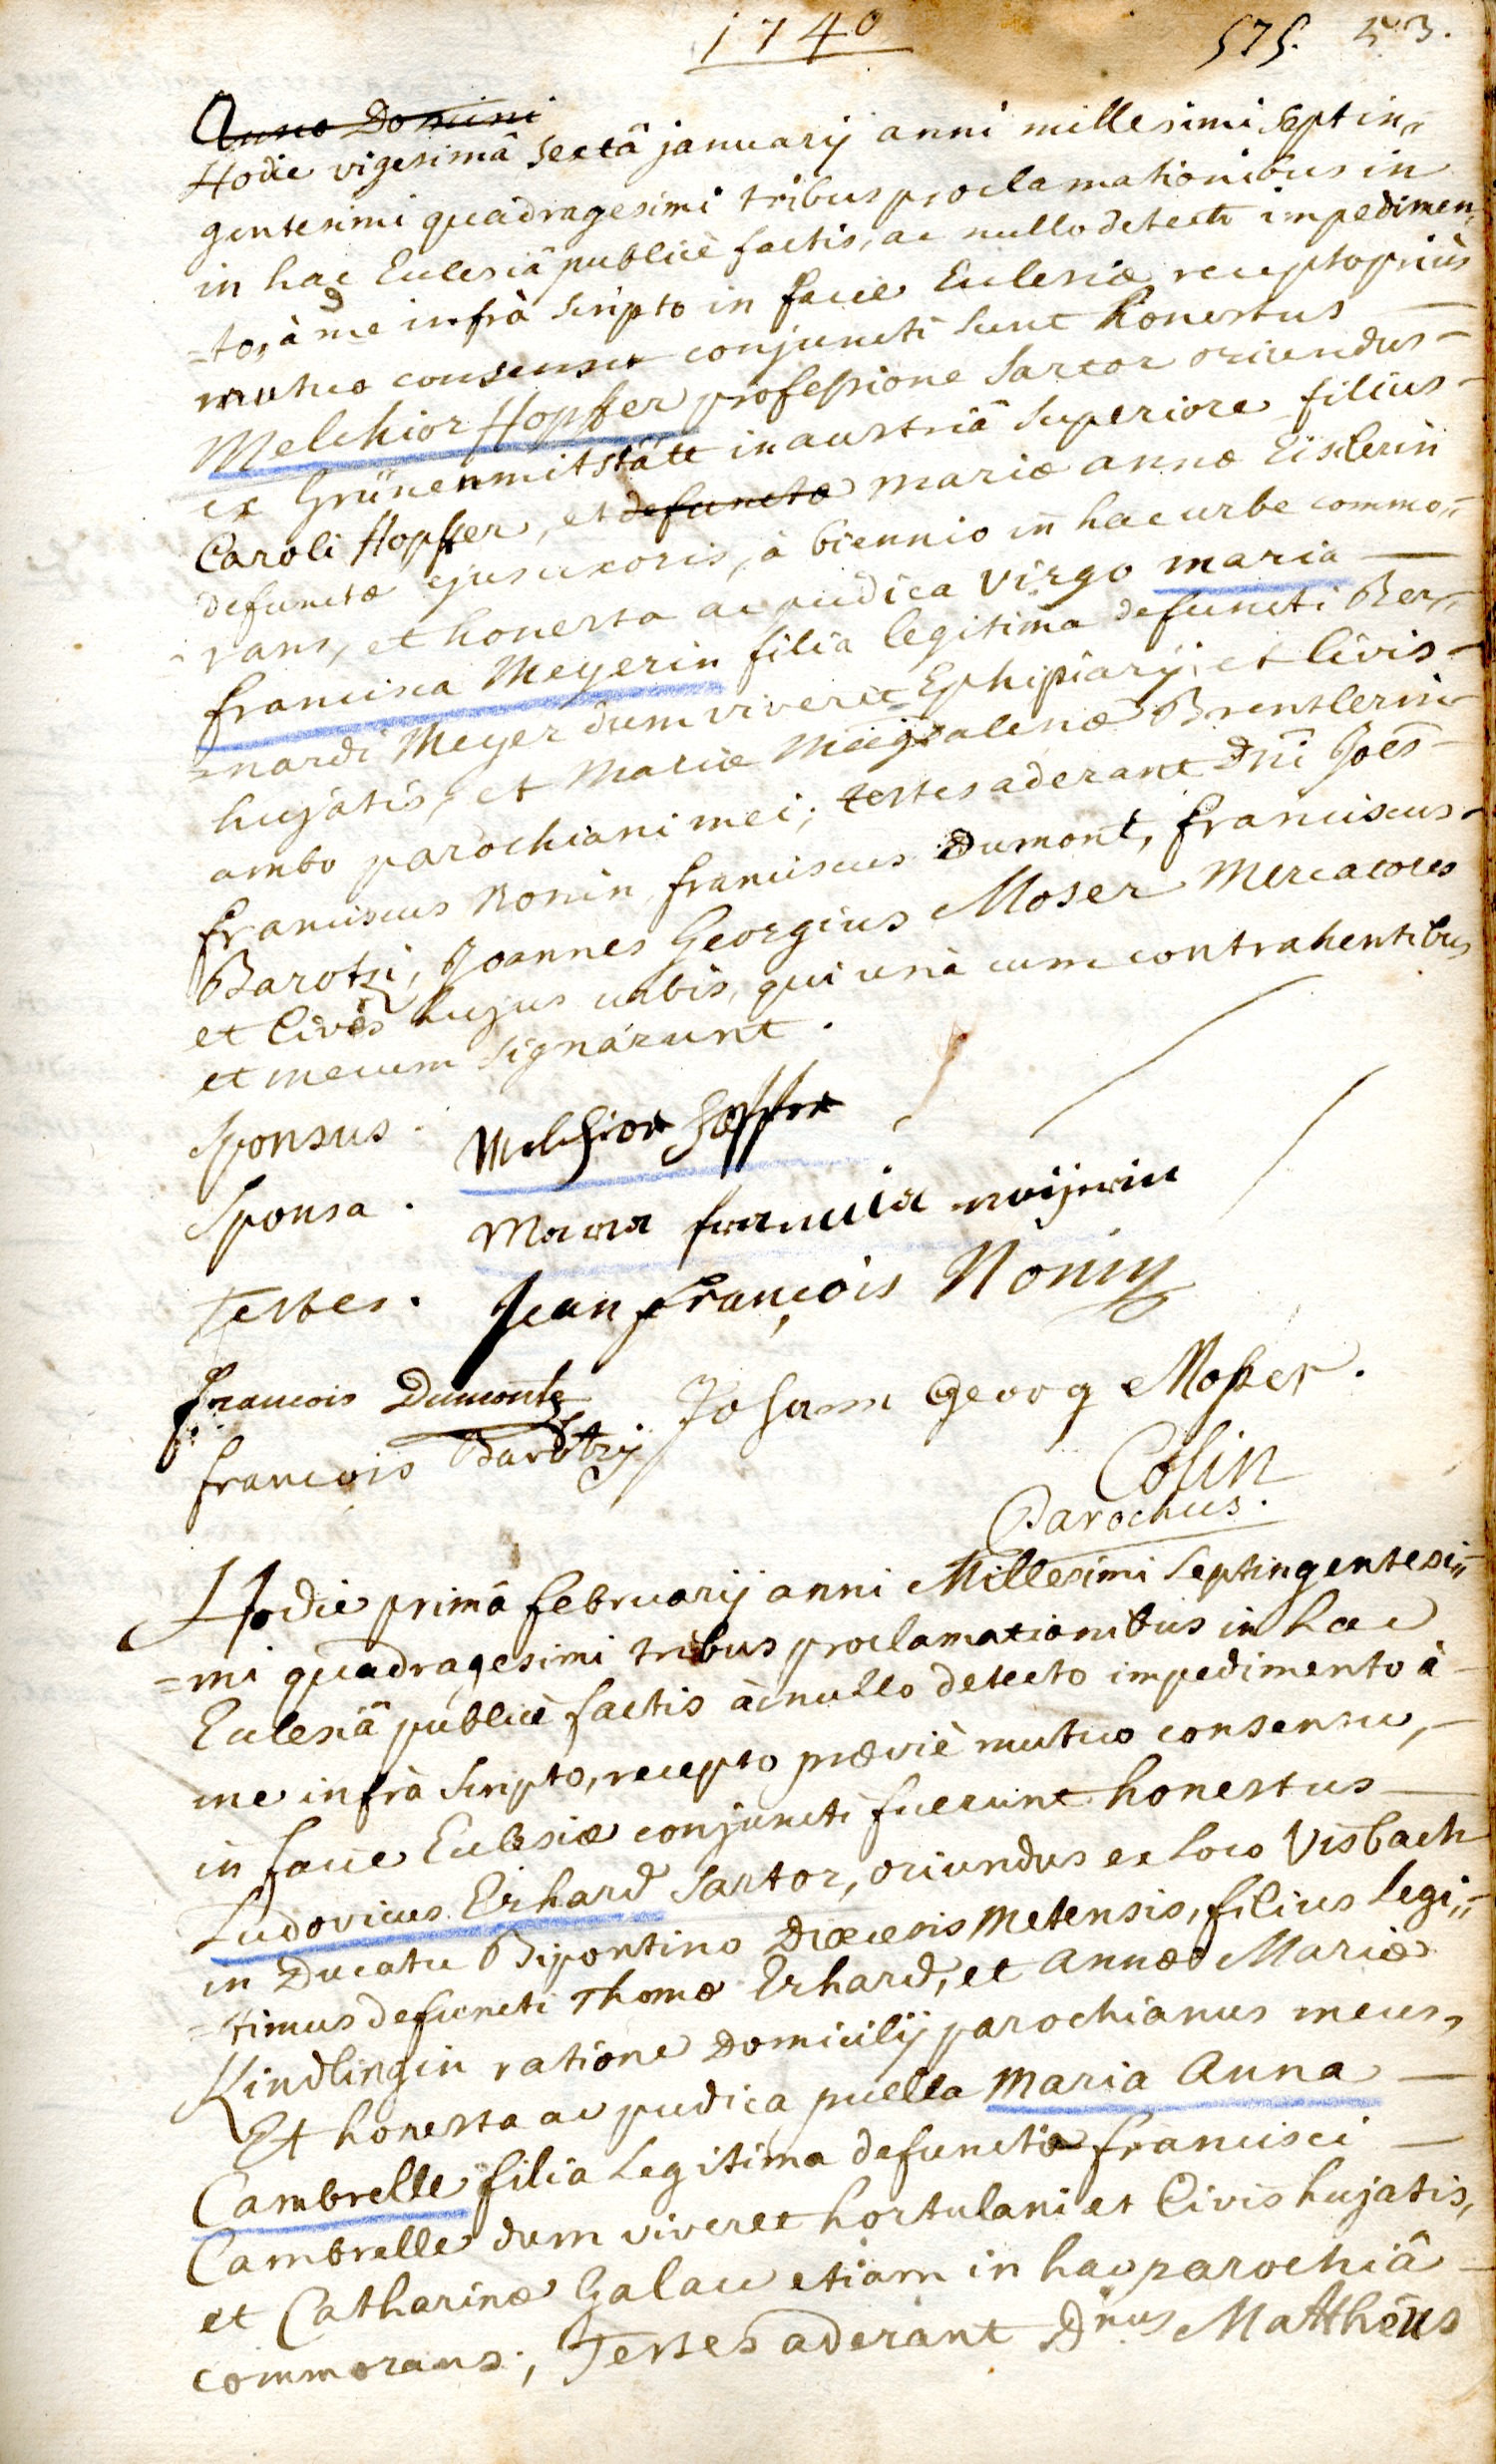 1740
575. 53.
Anno Domini
Hodie vigesimâ sextâ januarij anni millesimi septin„
gentesimi quadragesimi tribus proclamationibus in
in hac Ecclesiâ publicè factis, ac nullo detecto impedimen„
=to, à me infrà scripto in facie Ecclesiæ recepto priùs
mutuo consensu conjuncti sunt honestus —
Melchior Hopffer professione Sartor oriundus –
ex Grünenmitstätt in austriâ superiore filius –
Caroli Hopffer, et defunctæ mariæ annæ Eislerin
defunctæ ejus uxoris, à biennio in hac urbe commo„
rans, et honesta ac pudica virgo maria —
francisca Meyerin filia legitima defuncti Ber„
=nardi Meyer dum viveret Ephipiarij et civis –
hujatis, et Mariæ Magdalenæ Brentlerin
ambo parochiani mei; testes aderant Dni Joês
franciscus Nonin, franciscus Dumont, franciscus –
Barotzi, Joannes Georgius Moser Mercatores
et Cives hujus urbis, qui unà cum contrahentibus
et mecum signarunt.
Sponsus. Melchior Hopffer
Sponsa. Maria francica meijerin
Testes. Jean françois Nonin
francois Dumont Johann Georg Moser.
francois Barotzij
Colin
Parochus.
Hodie primâ februarij anni Millesimi Septingentesi„
=mi quadragesimi tribus proclamationibus in hac
Ecclesiâ publicè factis àc nullo detecto impedimento à –
me infrà scripto, recepto præviè mutuo consensu, –
in facie Ecclesiæ conjuncti fuerunt honestus —
Ludovicus Erhard Sartor, oriundus ex loco Visbach
in Ducatu Bipontino Diœcesis Metensis, filius legi„
=timus defuncti Thomæ Erhard, et Annæ Mariæ
Kindlingin ratione Domicilij parochianus meus,
Et honesta ac pudica puella Maria Anna —
Cambrelle filia legitima defuncti francisci —
Cambrelle dum viveret hortulani et Civis hujatis,
et Catharinæ Galau etiam in hac parochiâ –
commorans; Testes aderant Dnus Matthêus